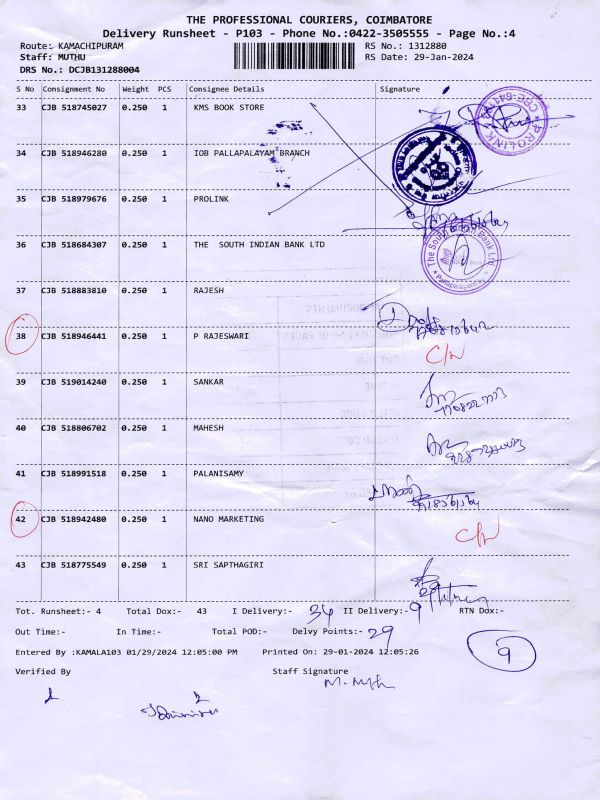 THE PROFESSIONAL COURIERS, COIMBATORE
Delivery Runsheet - P103 - Phone No.:0422-3505555 - Page No.:4
Route: KAMACHIPURAM RS No.: 1312880
Staff: MUTHU RS Date: 29-Jan-2024
DRS No.: DCJB131288004
S No Consignment No Weight PCS Consignee Details Signature
33 CJB 518745027 0.250 1 KMS BOOK STORE
34 CJB 518946280 0.250 1 IOB PALLAPALAYAM BRANCH
35 CJB 518979676 0.250 1 PROLINK
36 CJB 518684307 0.250 1 THE SOUTH INDIAN BANK LTD
37 CJB 518883810 0.250 1 RAJESH
38 CJB 518946441 0.250 1 P RAJESWARI
39 CJB 519014240 0.250 1 SANKAR
40 CJB 518806702 0.250 1 MAHESH
41 CJB 518991518 0.250 1 PALANISAMY
42 CJB 518942480 0.250 1 NANO MARKETING
43 CJB 518775549 0.250 1 SRI SAPTHAGIRI
Tot. Runsheet:- 4 Total Dox:- 43 I Delivery:- 34 II Delivery:- 9 RTN Dox:-
Out Time:- In Time:- Total POD:- Delvy Points:- 29
9
Entered By :KAMALA103 01/29/2024 12:05:00 PM Printed On: 29-01-2024 12:05:26
Verified By Staff Signature